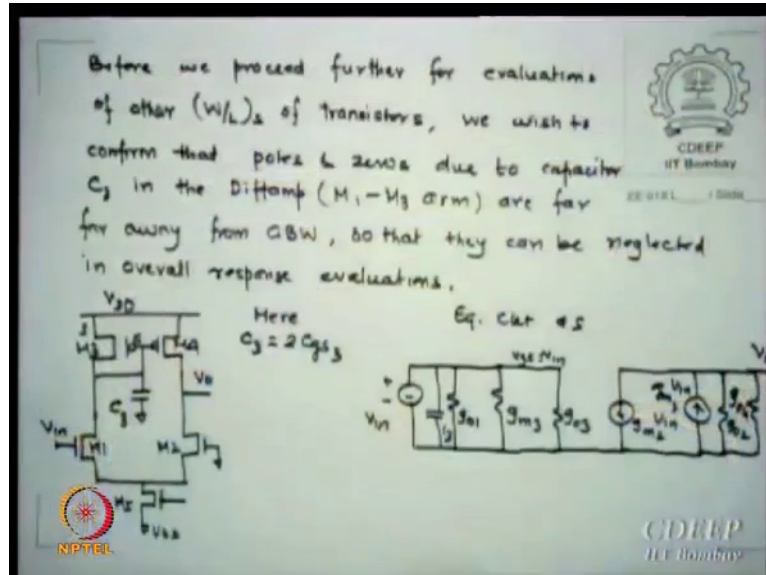 Before we proceed further for evaluations
of other (W/L)s of transistors, we wish to
confirm that poles & zeros due to capacitor
C3 in the Diffamp (M1-M3 arm) are far
far away from GBW, so that they can be neglected
in overall response evaluations.
CDEEP
IIT Bombay
EE 618 L / Slide
VDD
Here
C3 = 2 Cgs3
Eq. Ckt as
S
M3
M4
C3
Vo
Vin
M1
M2
M5
Vss
Vin
go1
gm3
go3
gm2
Vin
NPTEL
CDEEP
IIT Bombay